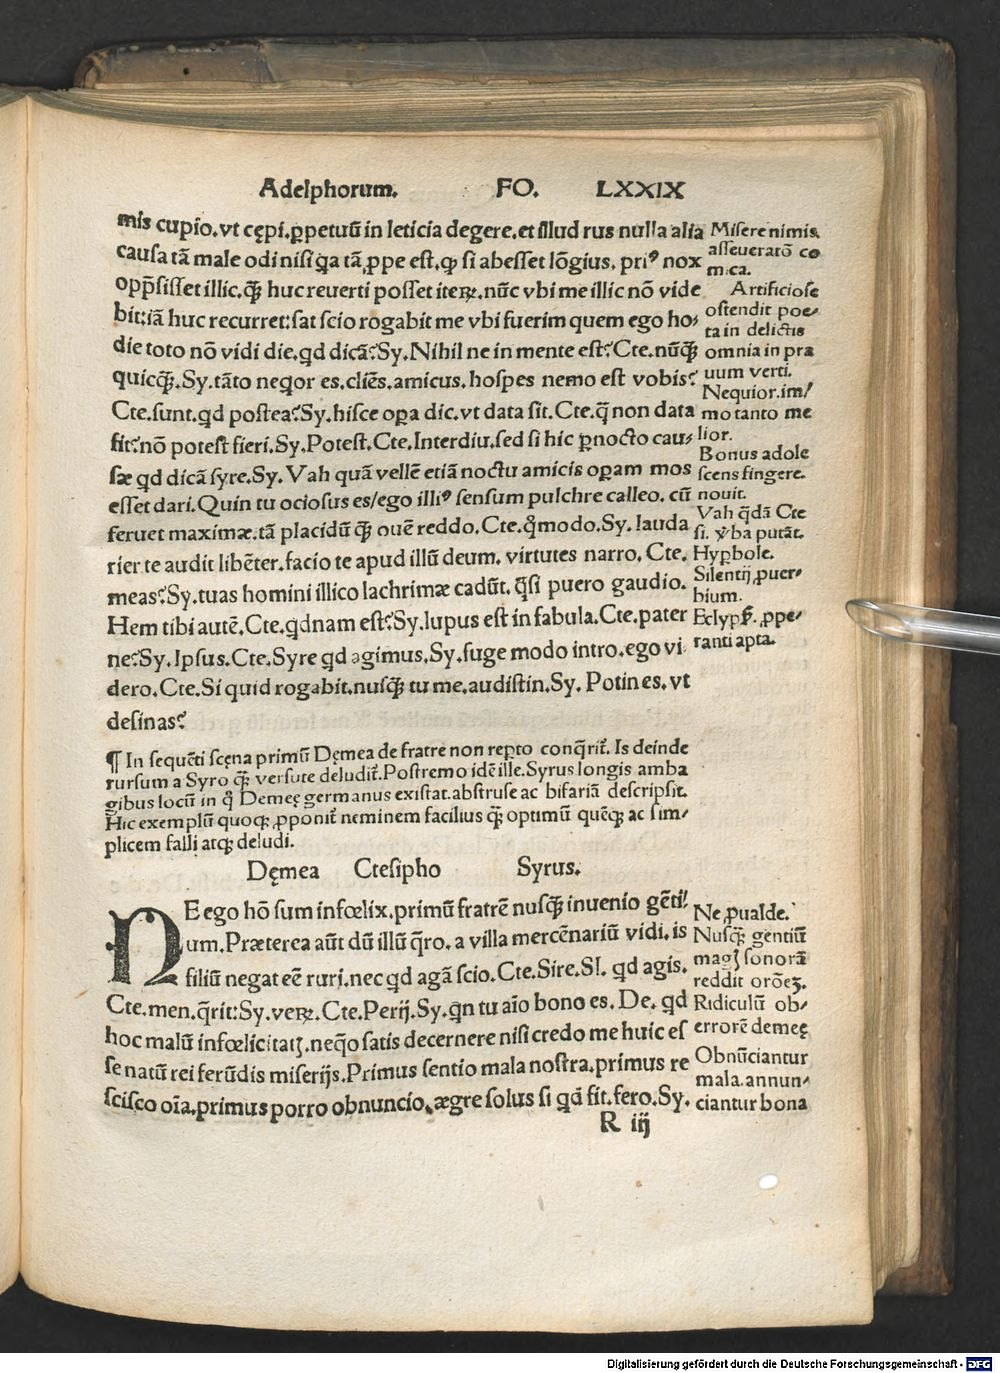 Adelphorum. FO. LXXIX
mis cupio.vt cępi.ꝑpetuū in leticia degere.et illud rus nulla alia
causa tā male odi nisi ꝗa tā ꝓpe est.ꝙ si abesset lōgius.priꝰ nox
opp̄sisset illic.ꝙ̄ huc reuerti posset iteꝝ.nūc vbi me illic nō vide
bit:iā huc recurret:sat scio rogabit me vbi fuerim quem ego ho/
die toto nō vidi die.ꝗd dicā?Sy.Nihil ne in mente est?Cte.nūꝙ̄
quicꝙ̄.Sy.tāto neqor es.cliēs.amicus.hospes nemo est vobis?
Cte.sunt.ꝗd postea?Sy.hisce oꝑa dic.vt data sit.Cte.q̄ non data
fit?nō potest fieri.Sy.Potest.Cte.Interdiu.sed si hic ꝑnocto cau/
sæ ꝗd dicā syre.Sy.Vah quā vellē etiā noctu amicis oꝑam mos
esset dari.Quin tu ociosus es/ego illiꝰ sensum pulchre calleo.cū
feruet maximæ.tā placidū ꝙ̄ ouē reddo.Cte.q̊modo.Sy.lauda
rier te audit libēter.facio te apud illū deum.virtutes narro.Cte.
meas?Sy.tuas homini illico lachrimæ cadūt.q̄si puero gaudio.
Hem tibi autē.Cte.ꝗdnam est?Sy.lupus est in fabula.Cte.pater
ne?Sy.Ipsus.Cte.Syre ꝗd agimus.Sy.fuge modo intro.ego vi
dero.Cte.Si quid rogabit.nusꝙ̄ tu me.audistin.Sy.Potin es.vt
desinas?
Misere nimis.
asseueratō co
mica.
Artificiose
ostendit poe/
ta in delictis
omnia in pra
uum verti.
Nequior.im/
mo tanto me
lior.
Bonus adole
scens fingere.
nouit.
Vah q̄dā Cte
si. v̓ba putāt.
Hyꝑbole.
Silentij ꝓuer/
bium.
Eclypẜ.ꝓpe/
ranti apta.
¶ In sequēti scęna primū Dęmea de fratre non reꝑto conq̄rit᷑. Is deinde
rursum a Syro ꝙ̄ versute deludit᷑.Postremo idē ille.Syrus longis amba
gibus locū in q̊ Demeę germanus existat.abstruse ac bifariā descripsit.
Hic exemplū quoqꝫ ꝓponit᷑ neminem facilius ꝙ̄ optimū quēqꝫ ac sim/
plicem falli atqꝫ deludi.
Dęmea Ctesipho Syrus.
NE ego hō sum infœlix.primū fratrē nusꝙ̄ inuenio gēti/
um.Præterea aūt dū illū q̄ro.a villa mercēnariū vidi.is
filiū negat eē ruri.nec ꝗd agā scio.Cte.Sire.SI. ꝗd agis.
Cte.men.q̄rit?Sy.veꝝ.Cte.Perij.Sy.ꝗn tu aīo bono es. De. ꝗd
hoc malū infœlicitatꝭ.neq̊o satis decernere nisi credo me huic es
se natū rei ferūdis miserijs.Primus sentio mala nostra.primus re
scisco oīa.primus porro obnuncio.ægre solus si ꝗd fit.fero.Sy.
Ne ꝓualde.
Nusꝙ̄ gentiū
magꝭ sonorā
reddit orōeꝫ.
Ridiculū ob/
errorē demeę
Obnūciantur
mala.annun/
ciantur bona
R iij
Digitalisierung gefördert durch die Deutsche Forschungsgemeinschaft - DFG